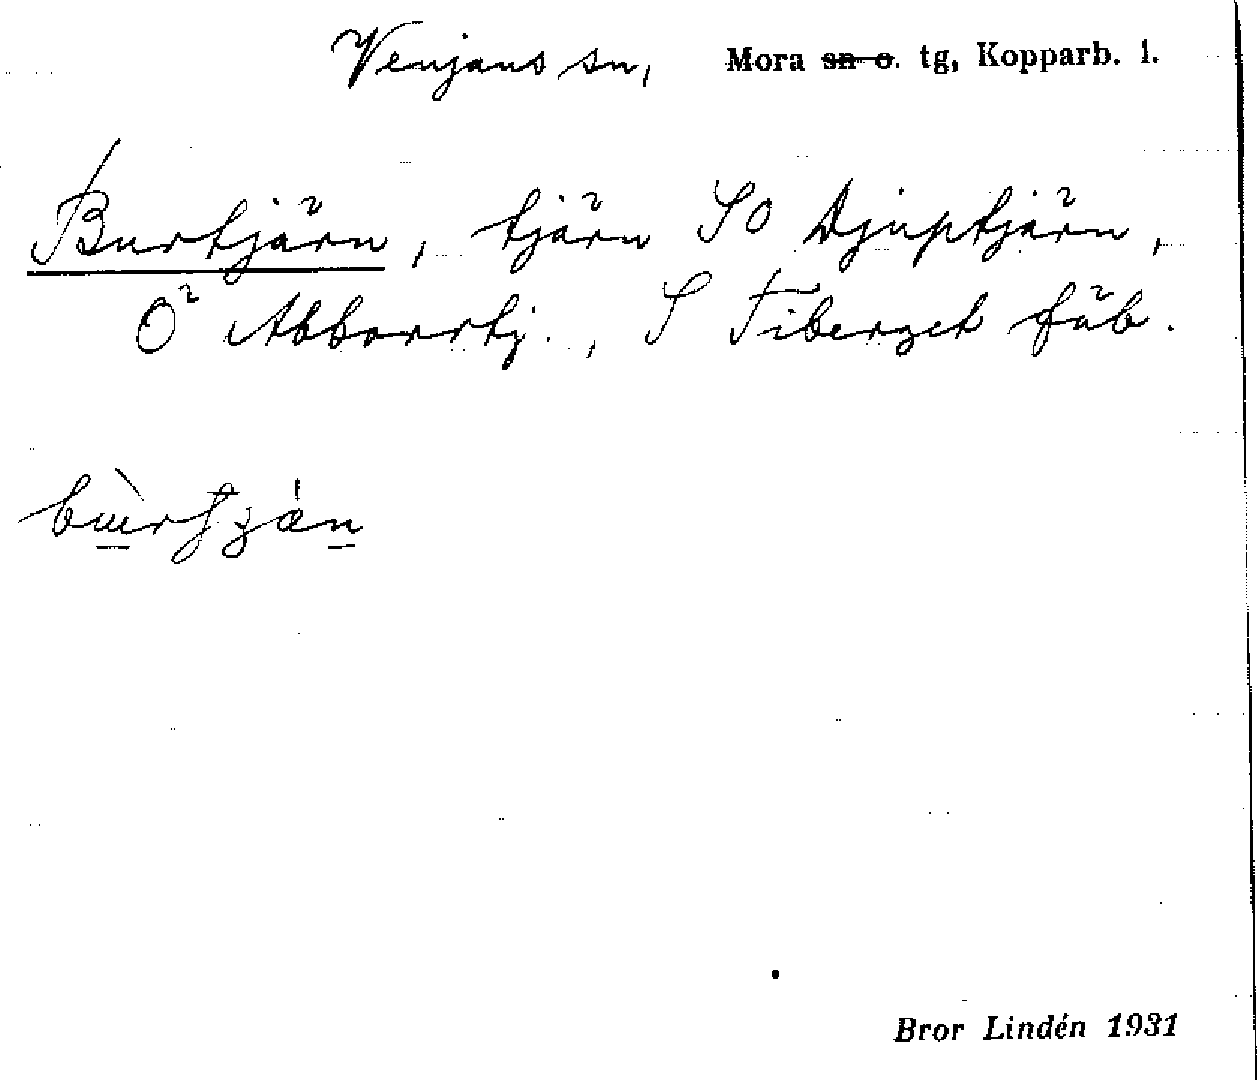 Venjans sn, Mora sn o. tg, Kopparb. l.
Burtjärn, tjärn SO Djuptjärn,
Ö Abborrtj., S Fiberget fäb.
Bror Lindén 1931